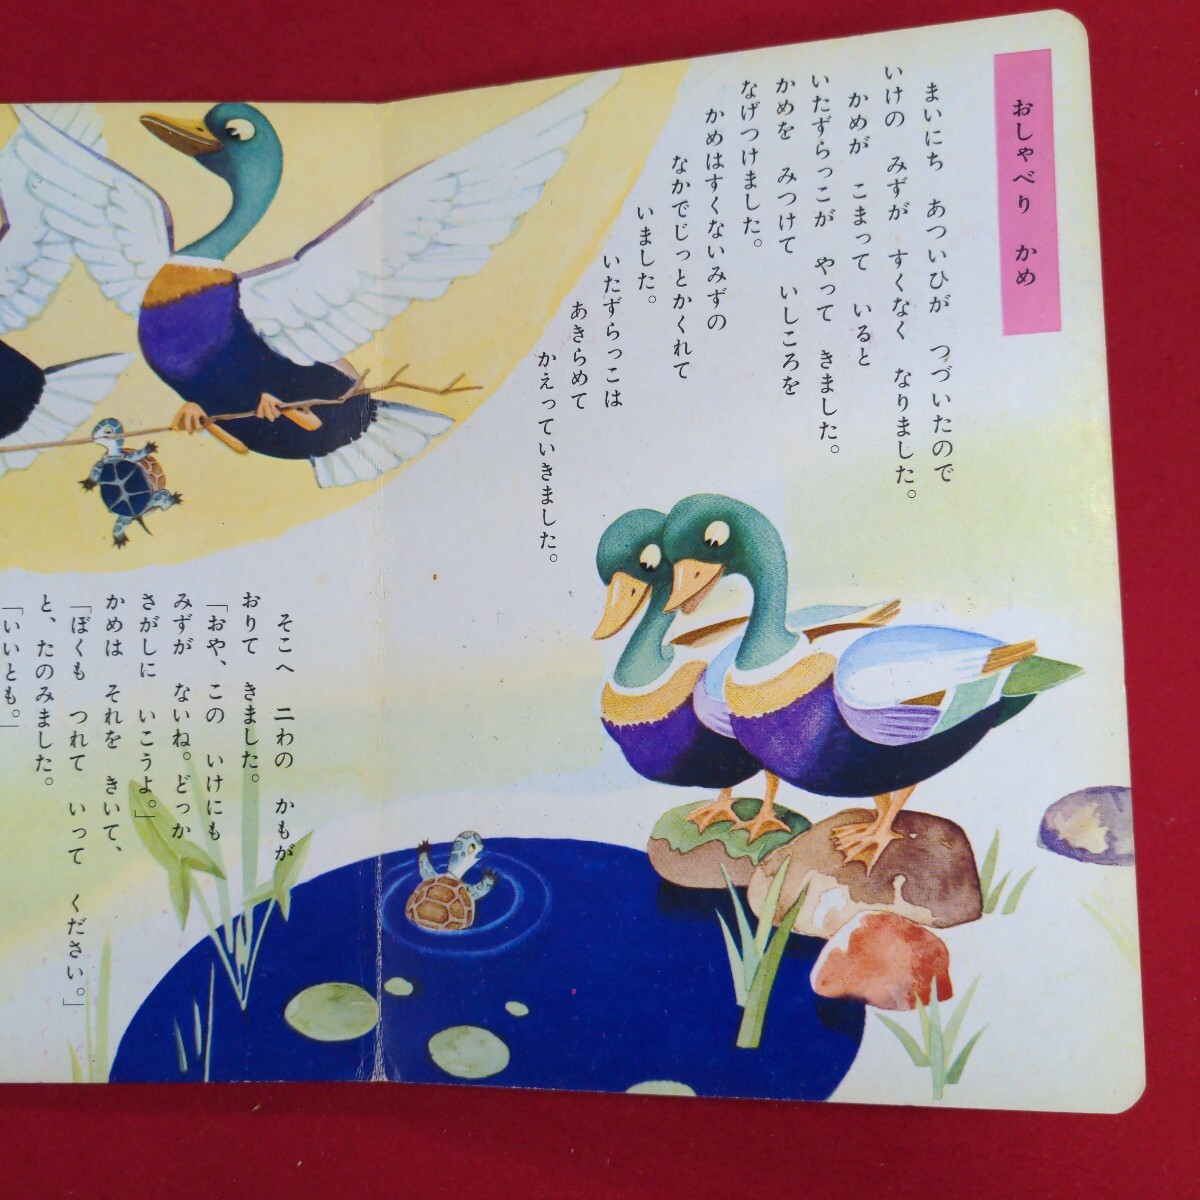 おしゃべり かめ
まいにち あついひが つづいたので
いけの みずが すくなく なりました。
かめが こまって いると
いたずらっこが やって きました。
かめを みつけて いしころを
なげつけました。
かめはすくないみずの
なかでじっとかくれて
いました。
いたずらっこは
あきらめて
かえっていきました。
そこへ 二わの かもが
おりて きました。
「おや、この いけにも
みずが ないね。どっか
さがしに いこうよ。」
かめは それを きいて、
「ぼくも つれて いって ください。」
と、たのみました。
「いいとも。」